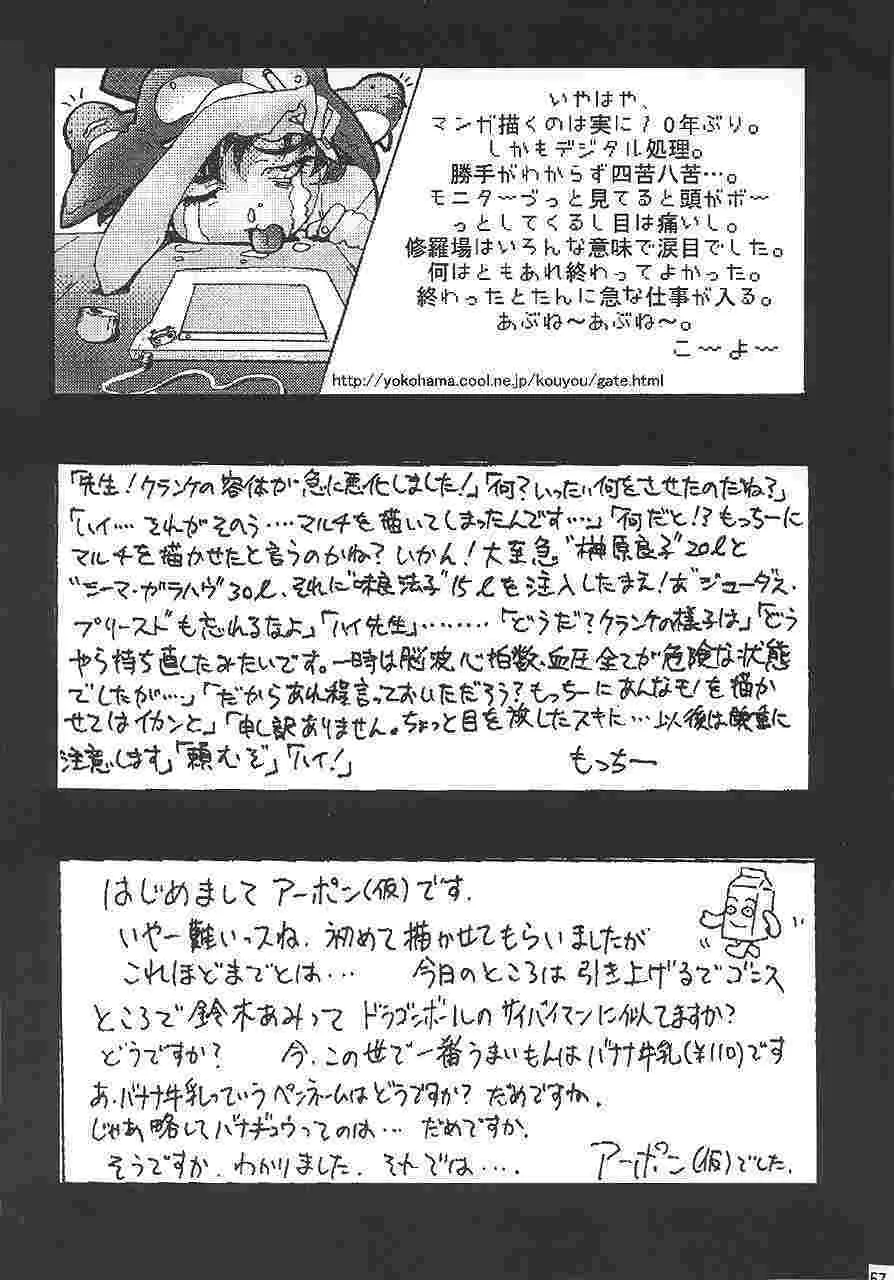 いやはや、
マンガ描くのは実に10年ぶり。
しかもデジタル処理。
勝手がわからず四苦八苦…。
モニターづっと見てると頭がボ〜
っとしてくるし目は痛いし。
修羅場はいろんな意味で涙目でした。
何はともあれ終わってよかった。
終わったとたんに急な仕事が入る。
あぶね〜あぶね〜。
こ〜よ〜
http://yokohama.cool.ne.jp/kouyou/gate.html
「先生!クランケの容体が急に悪化しました!」「何?いったい何をさせたのだね?」
「ハイ…. それがそのう….マルチを描いてしまったんです….」「何だと!?もっちーに
マルチを描かせたと言うのかね?いかん!大至急"榊原良子"20lと
"ニーマ・ガラハヴ"30l、それに"法子"15lを注入したまえ!あ"ジューダス・
プリースト"も忘れるなよ」「ハイ先生」………「どうだ?クランケの様子は」「どう
やら持ち直したみたいです。一時は脳波、心拍数、血圧全てが危険な状態
でしたが….」「だからあれ程言っておいただろう?もっちーにあんなモノを描か
せてはイカンと」「申し訳ありません。ちょっと目を放したスキに…以後は慎重に
注意します」「頼むぞ」「ハイ!」
もっちー
はじめまして アーポン(仮)です.
いやー難いっスね. 初めて描かせてもらいましたが
これほどまでとは… 今日のところは引き上げるでゴンス
ところで鈴木あみって ドラゴンボールのサイバイマンに似てますか?
どうですか? 今、この世で一番うまいもんはバナナ牛乳(¥110)です
あ.バナナ牛乳っていうペンネームはどうですか? だめですね.
じゃあ略してバナギュウってのは… だめですか.
そうですか. わかりました. それでは….
アーポン(仮)でした.
67